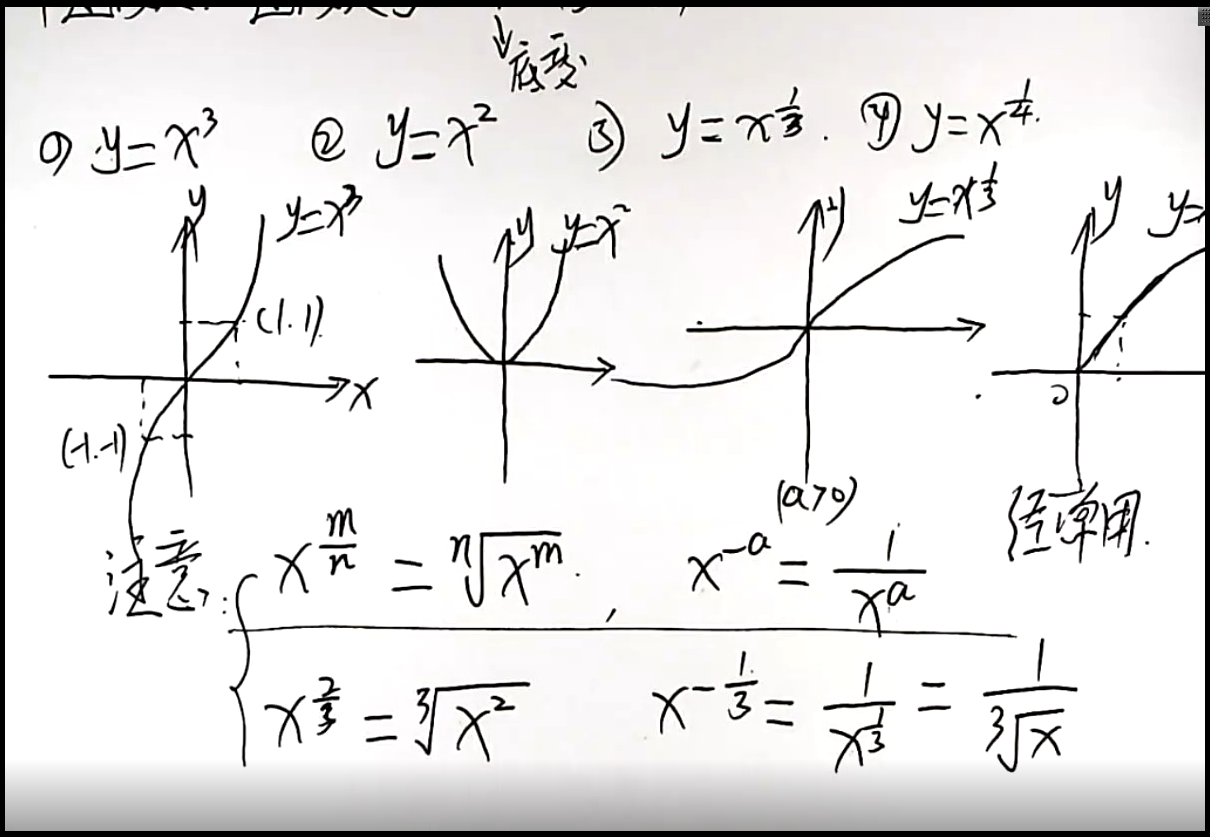 ↓底变
① y=x³ ② y=x² ③ y=x^{1/3}. ④ y=x^{1/4}.
y y=x³ y y=x² y y=x^{1/3} y y=
(1.1)
x
(-1.-1) o
(a>0)
注意: x^{m/n} = ⁿ√(x^m). , x^{-a} = 1/x^a 经常用.
x^{2/3} = ³√(x²) x^{-1/3} = 1/x^{1/3} = 1/³√x